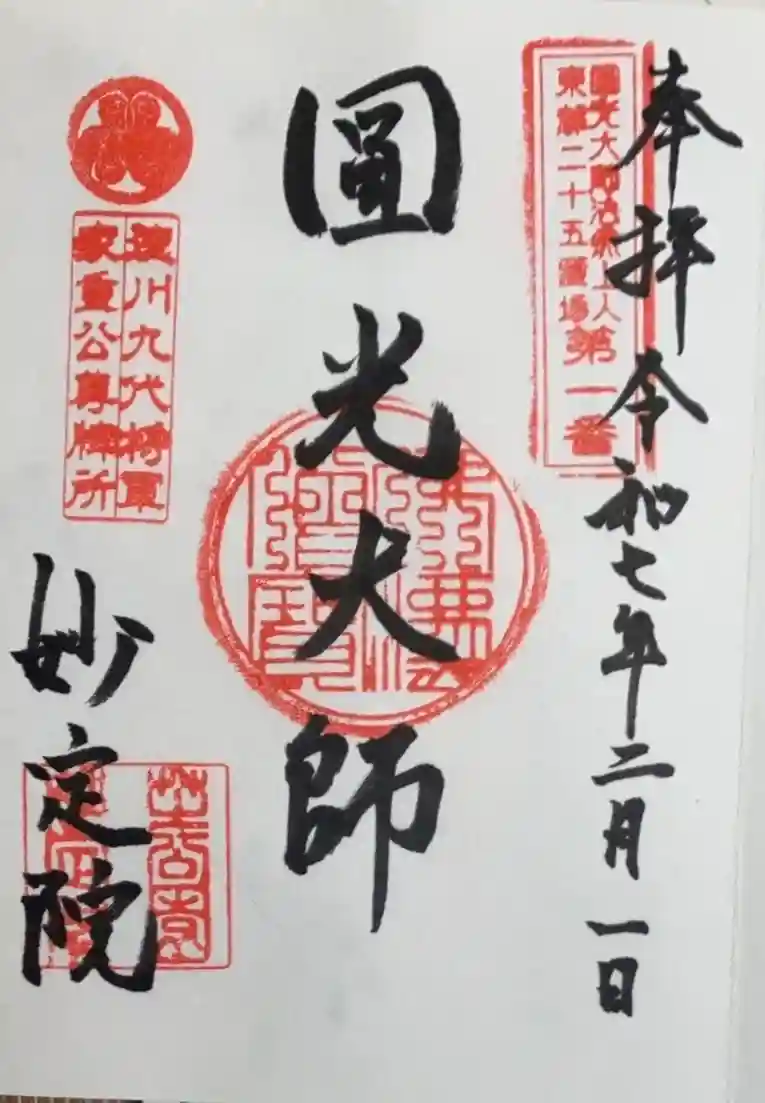 奉拝
令和七年二月一日
圓光大師法然上人
東都二十五霊場第一番
圓光大師
佛法僧寶
徳川九代将軍
家重公尊牌所
妙定院